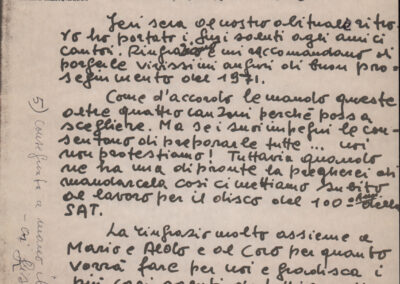 Ieri sera al nostro abituale ritro-
vo ho portato i Suoi saluti agli amici
cantori. Ringraziano e mi raccomandano di
porgerle vivissimi auguri di buon pro-
seguimento del 1971.
Come d'accordo le mando queste
altre quattro canzoni perché possa
scegliere. Ma se i suoi impegni le con-
sentono di prepararle tutte ... noi
non protestiamo! Tuttavia quando
ne ha una di pronta la pregherei di
mandarcela così ci mettiamo subito
al lavoro per il disco del 100° della
SAT.
La ringrazio molto assieme a
Mario e Aldo e al Coro per quanto
vorrà fare per noi e gradisca i
più cari
5) Consegnata a mano